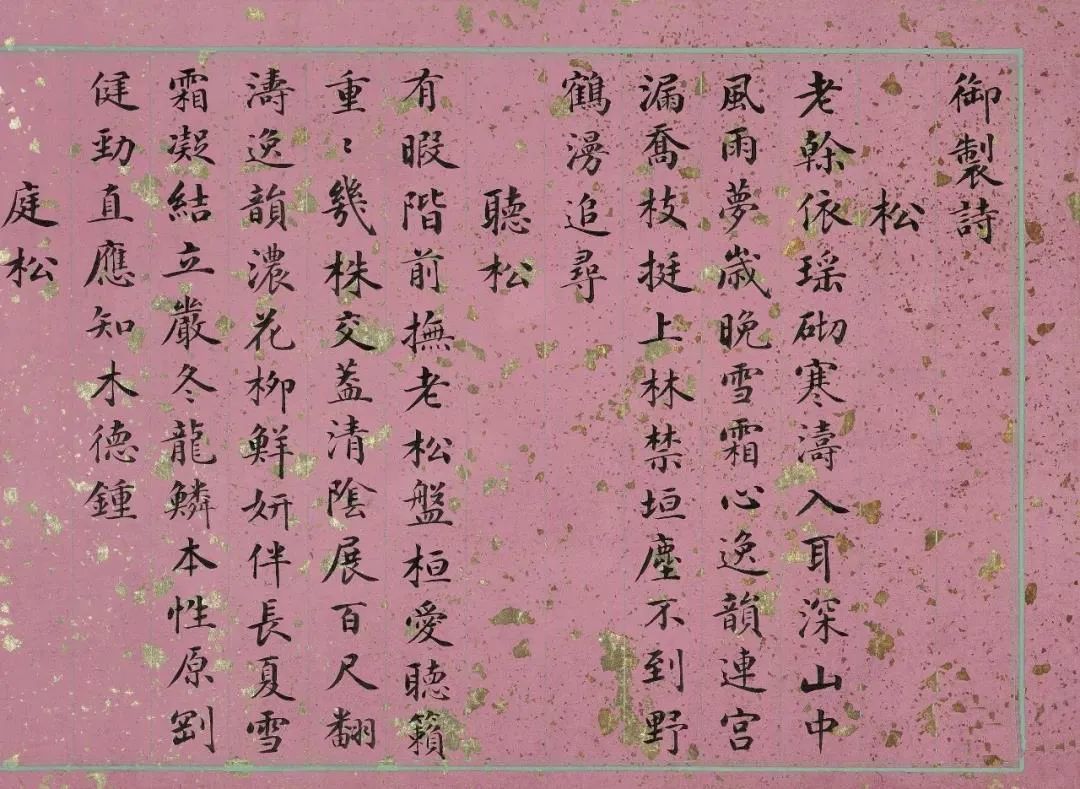 御製詩
松
老榦依瑶砌寒濤入耳深山中
風雨夢歲晚雪霜心逸韻連宫
漏喬枝挺上林禁垣塵不到野
鶴漫追尋
聽松
有暇階前撫老松盤桓愛聽籟
重〻幾株交蓋清陰展百尺翻
濤逸韻濃花柳鮮妍伴長夏雪
霜凝結立嚴冬龍鱗本性原剛
健勁直應知木德鍾
庭松